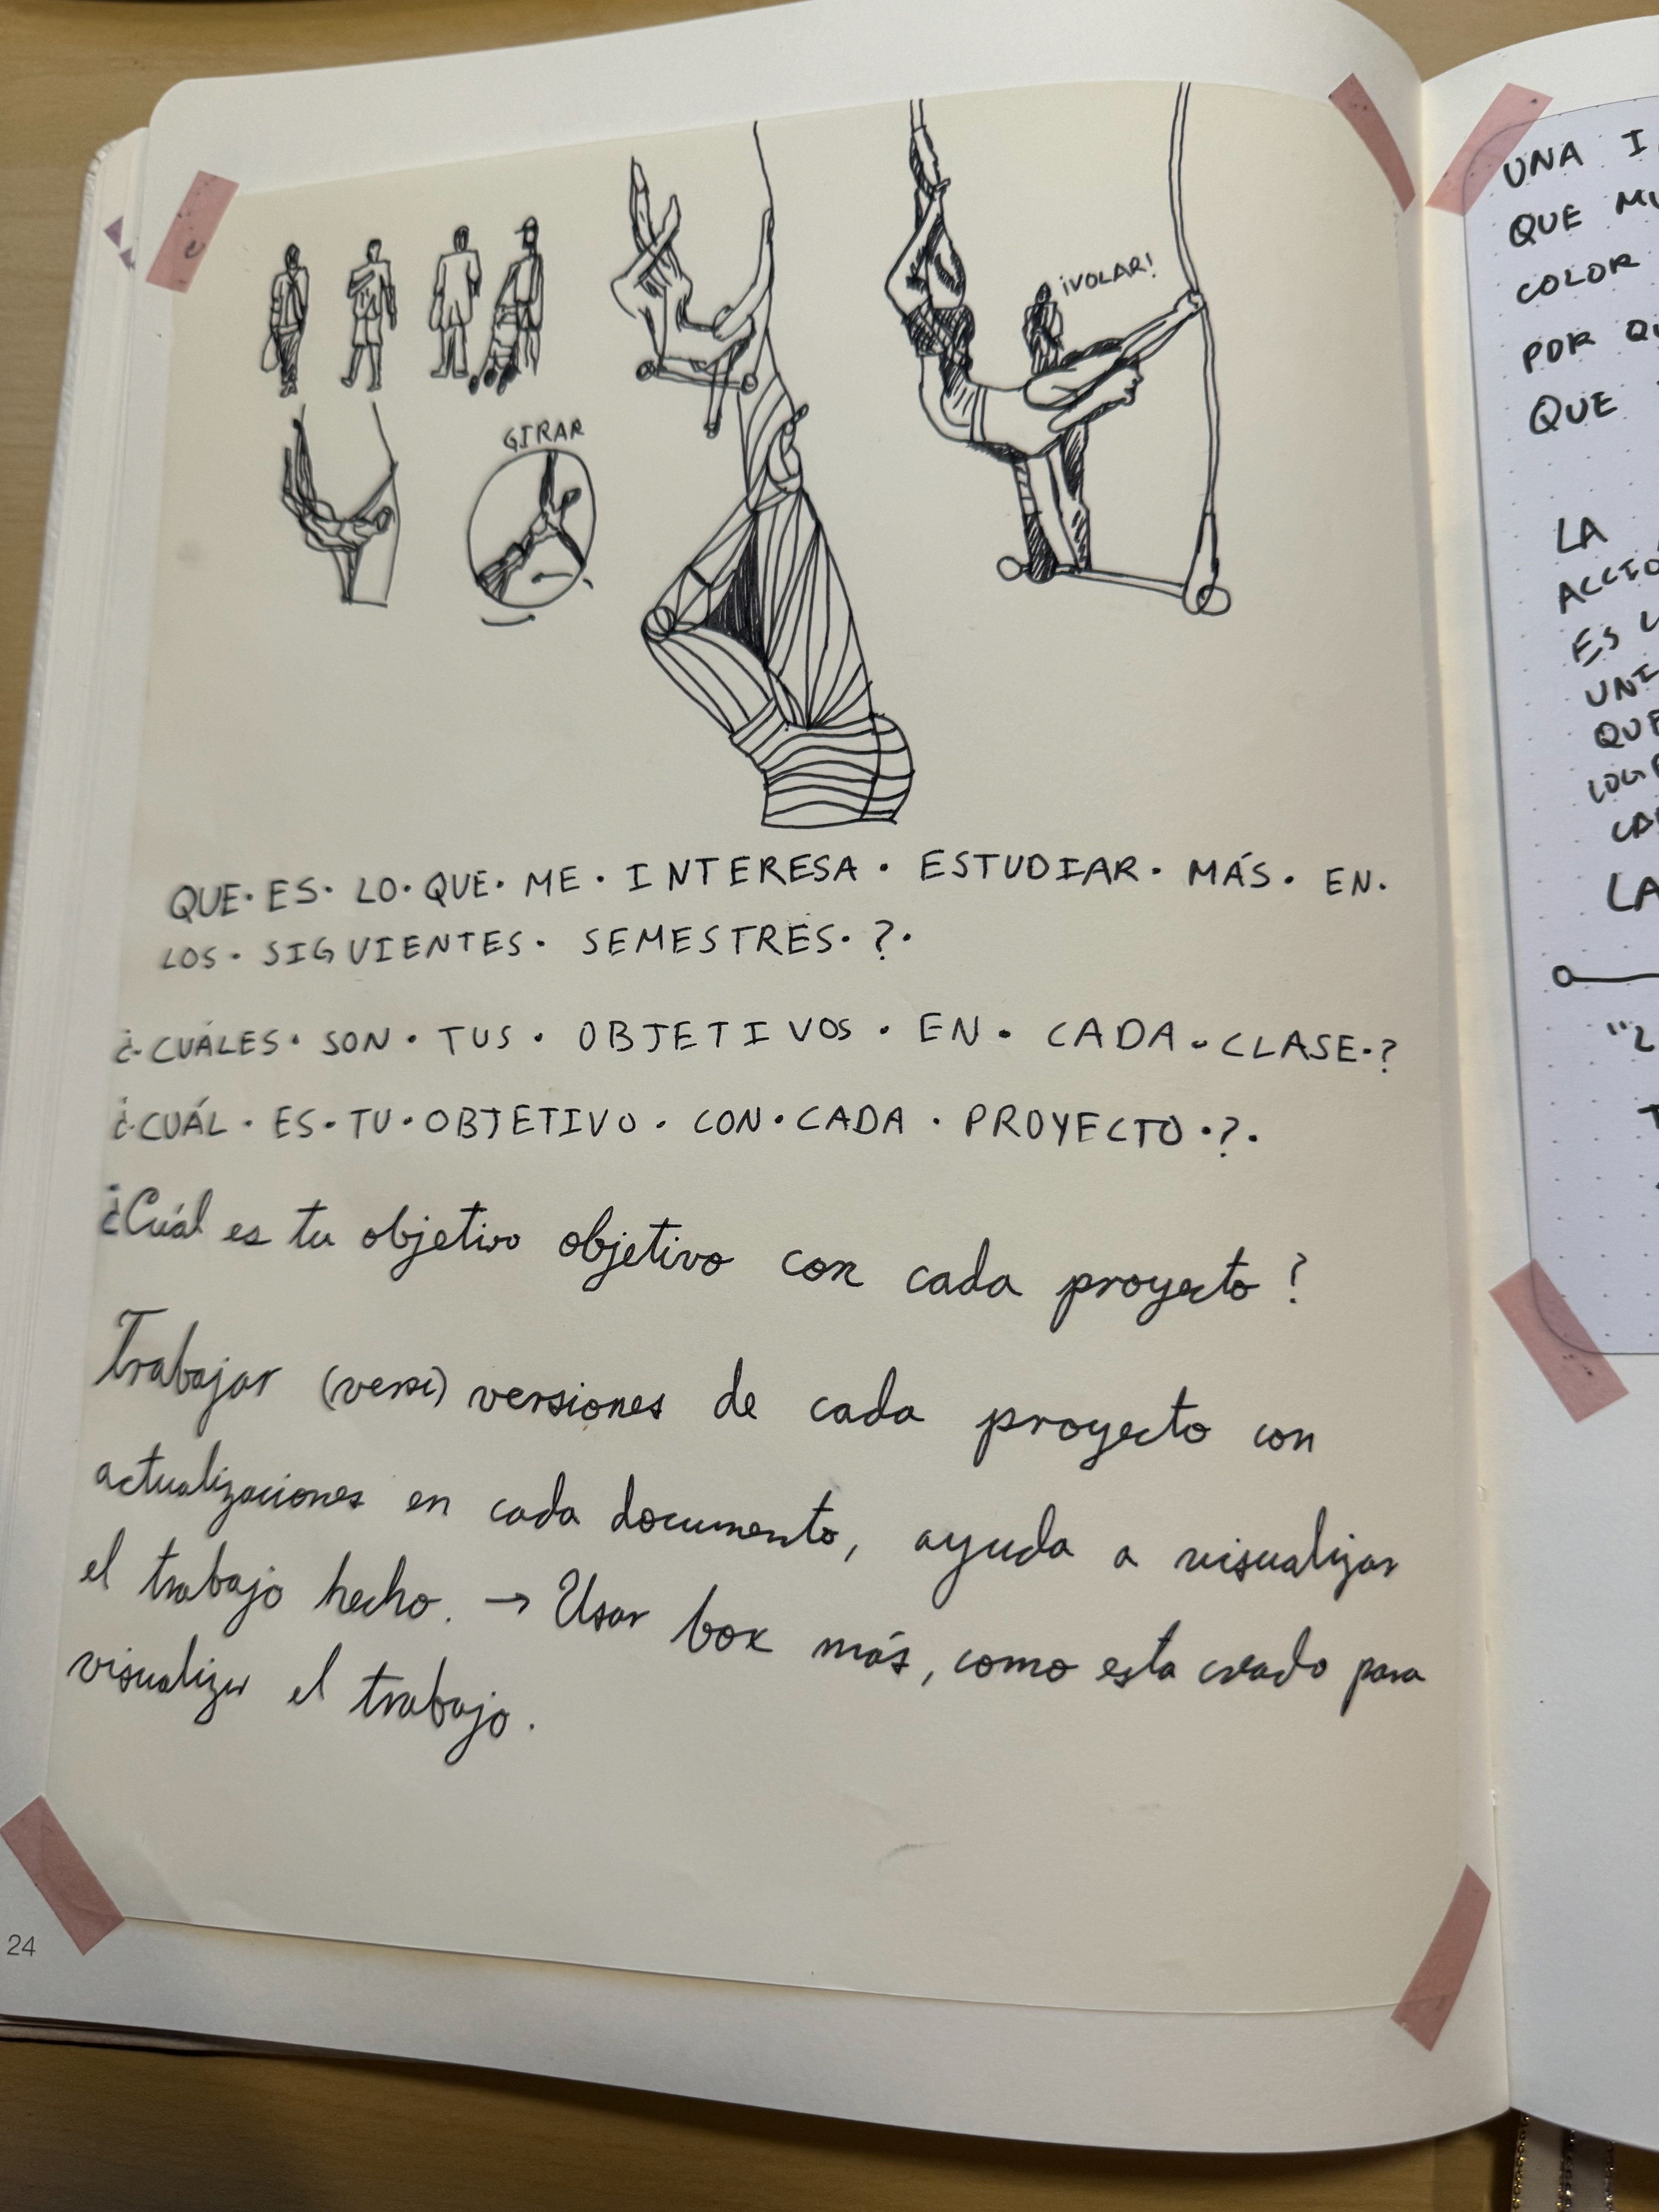 ¡VOLAR!
GIRAR
QUE · ES · LO · QUE · ME · INTERESA · ESTUDIAR · MÁS · EN ·
LOS · SIGUIENTES · SEMESTRES · ? ·
¿ · CUÁLES · SON · TUS · OBJETIVOS · EN · CADA · CLASE · ?
¿ · CUÁL · ES · TU · OBJETIVO · CON · CADA · PROYECTO · ? ·
¿Cuál es tu objetivo objetivo con cada proyecto ?
Trabajar (versi) versiones de cada proyecto con
actualizaciones en cada documento, ayuda a visualizar
el trabajo hecho. → Usar box más, como esta creado para
visualizar el trabajo.
24
UNA
QUE
COLOR
POR
QUE
LA
ES
QUE
LA